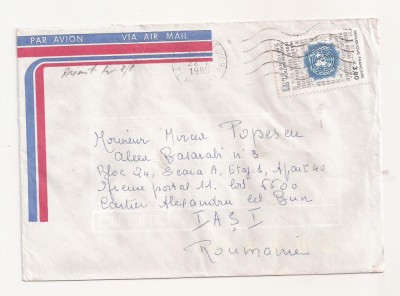 PAR AVION VIA AIR MAIL
198
3,90
Monsieur Mircea Popescu
Aleea Basarabi n° 3
Bloc 24, Scara A, Etaj. 1, Apart 40
Oficiul postal 11. cod 6600
Cartier Alexandru cel Bun
IAȘI
Roumanie